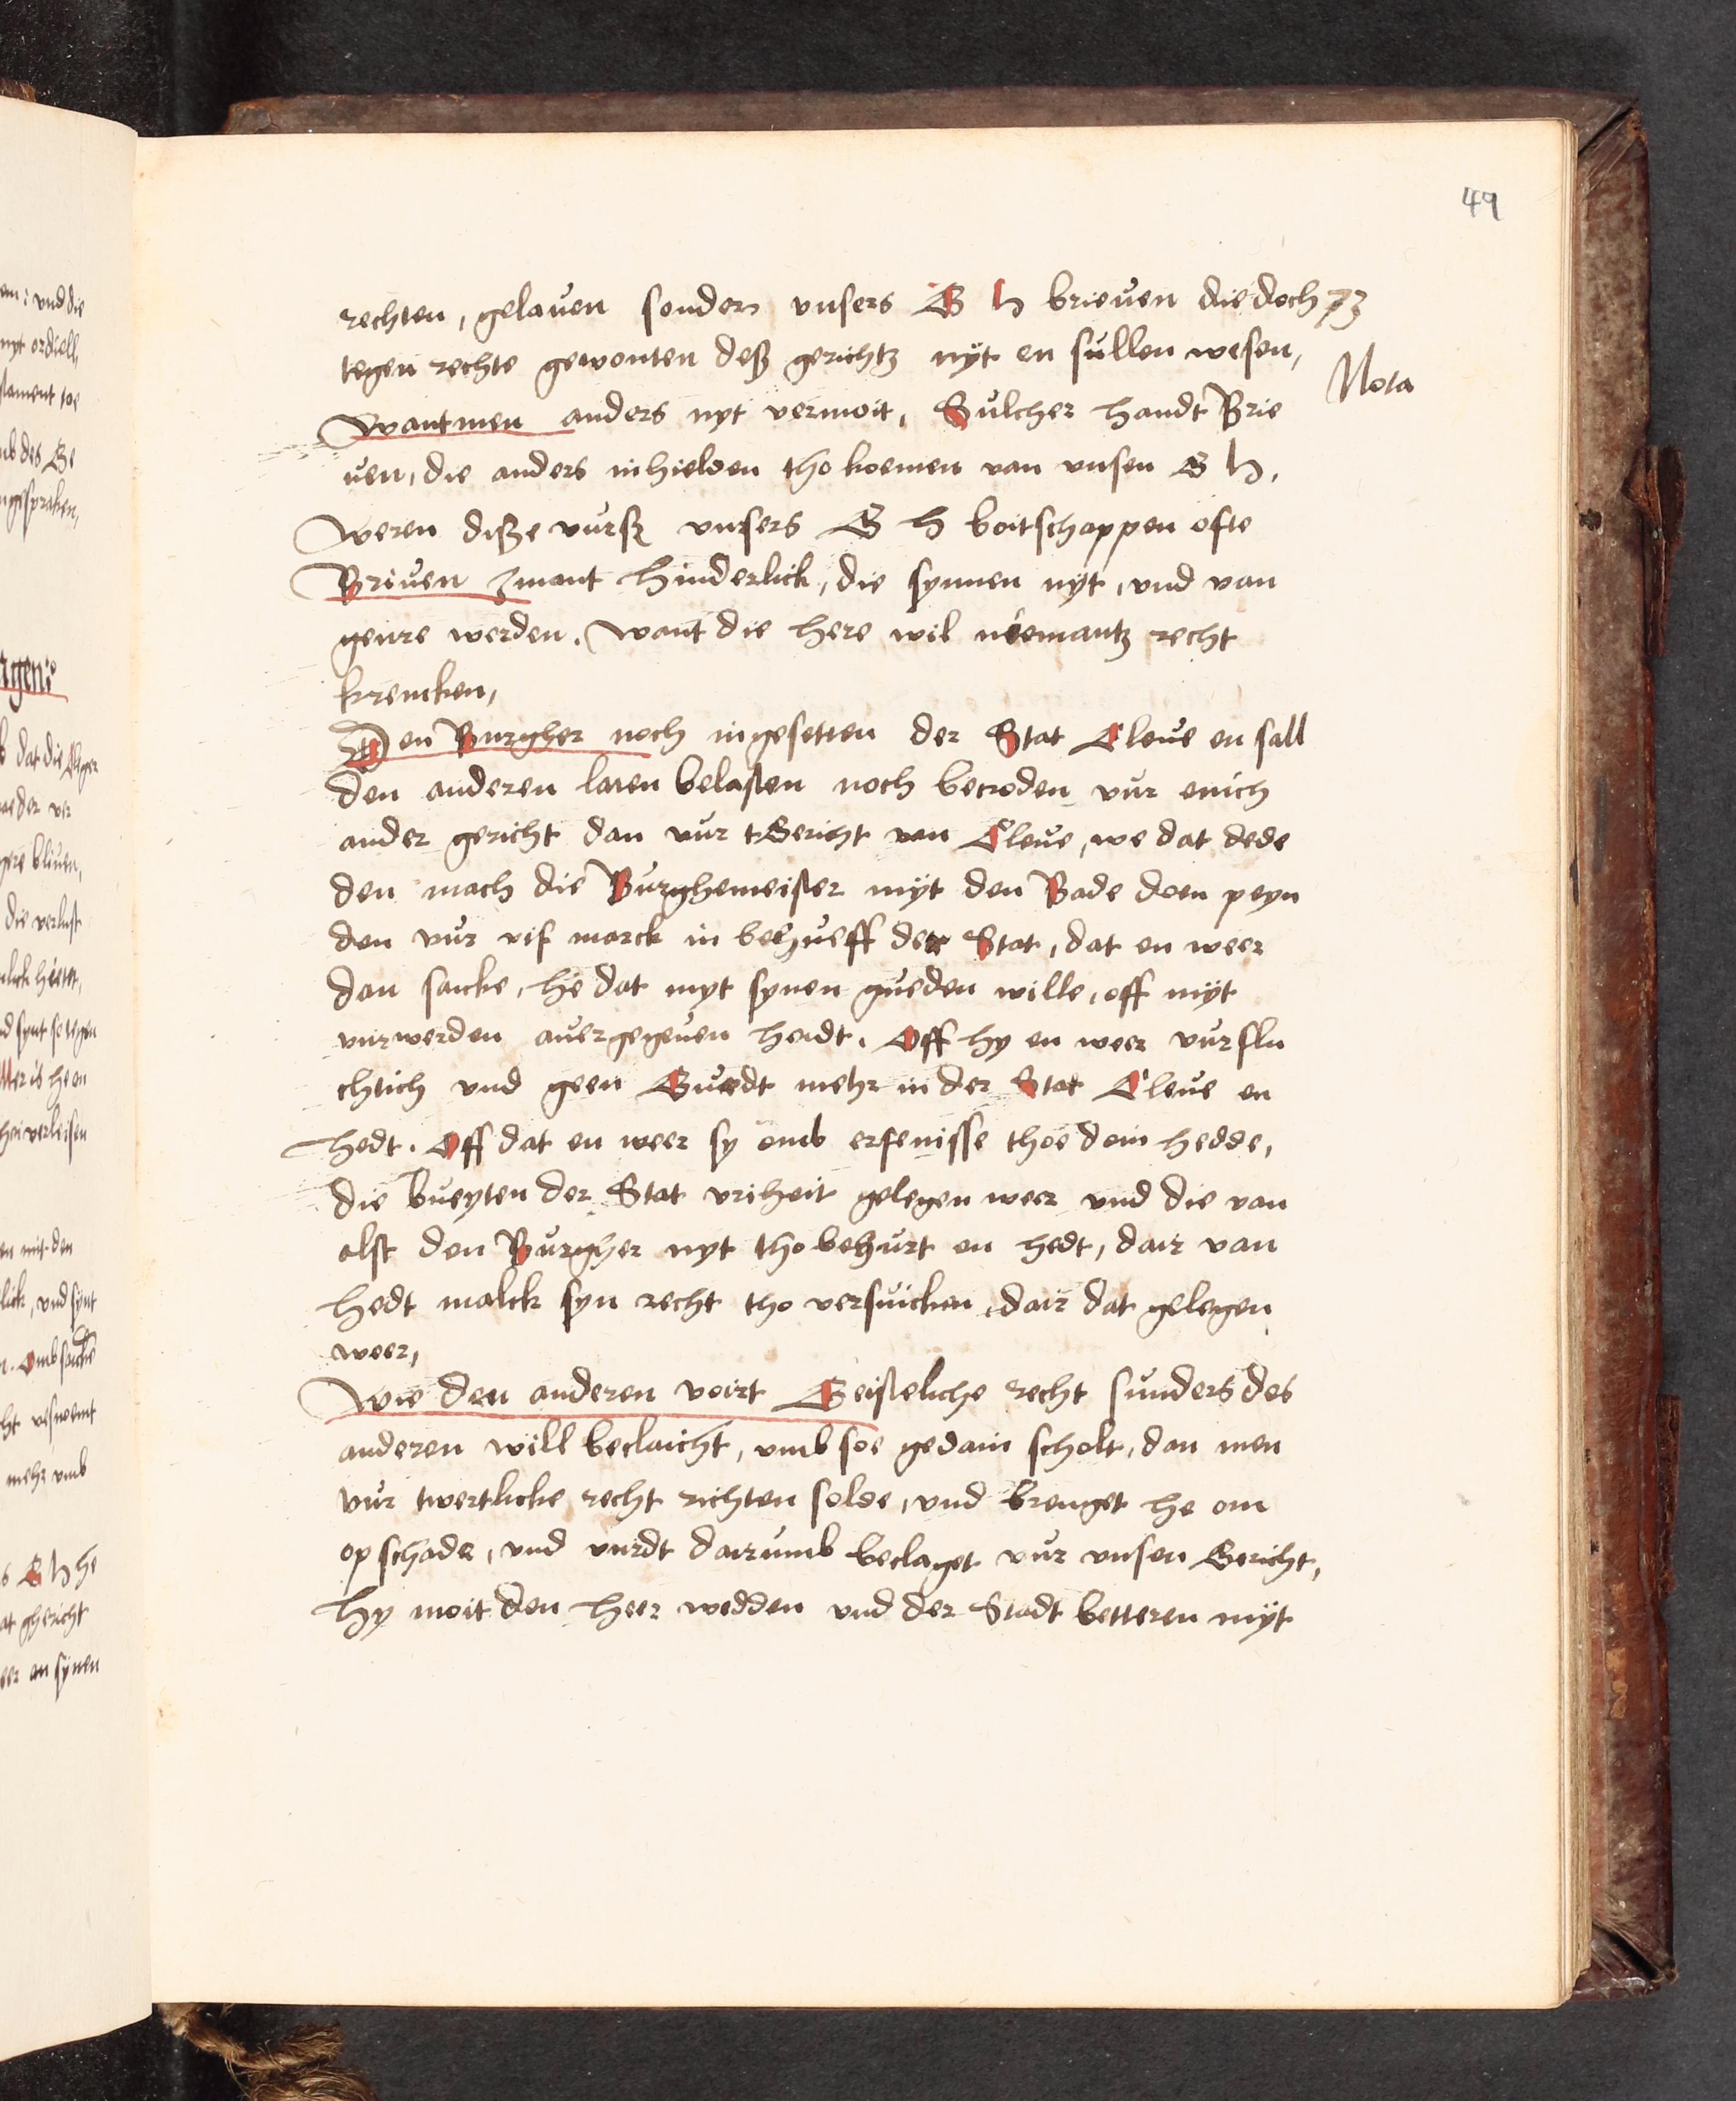 49
rechten, gelauen sonder unsers G h brieuen die doch
tegen rechte gewonten deß gerichtz nyt en sullen wesen,
Nota
Want men anders nyt vermoit, Sulcher handt Brie
uen, die anders inhielden tho koemen van unsen G h.
Weren disze vursz unsers G h boitschappen ofte
Briuen Imant hinderlick, die synnen nyt, und van
genre werden. Want die here wil niemantz recht
krencken,
Den Burgher noch ingesetten der Stat Cleue en sall
den anderen laten belasten noch becroden vur enich
ander gericht dan vur tGericht van Cleue, we dat dede
den mach die Burghemeister myt den Bade doen peyn
den vur vif marck in behueff der Stat, dat en weer
dan saicke, he dat myt synen gueden wille, off myt
vurwerden auergegeuen hedt. Off hy en weer vurflu
chtich und geen Guedt mehr in der Stat Cleue en
hedt. Off dat en weer sy omb erfenisse thoe doin hedde,
die bueyten der Stat vriheit gelegen weer und die van
alst den Burgher nyt tho behurt en hedt, dair van
hedt malck syn recht tho versuicken, dair dat gelegen
weer,
Wie den anderen voirt Geisteliche recht sunders des
anderen will beclaicht, umb soe gedain scholt, dan men
vur twertlicke recht richten solde, und brenget he om
op schade, und vurdt dairumb beclaget vur unsen Gericht,
hy moit den heer wedden und der Stadt betteren myt